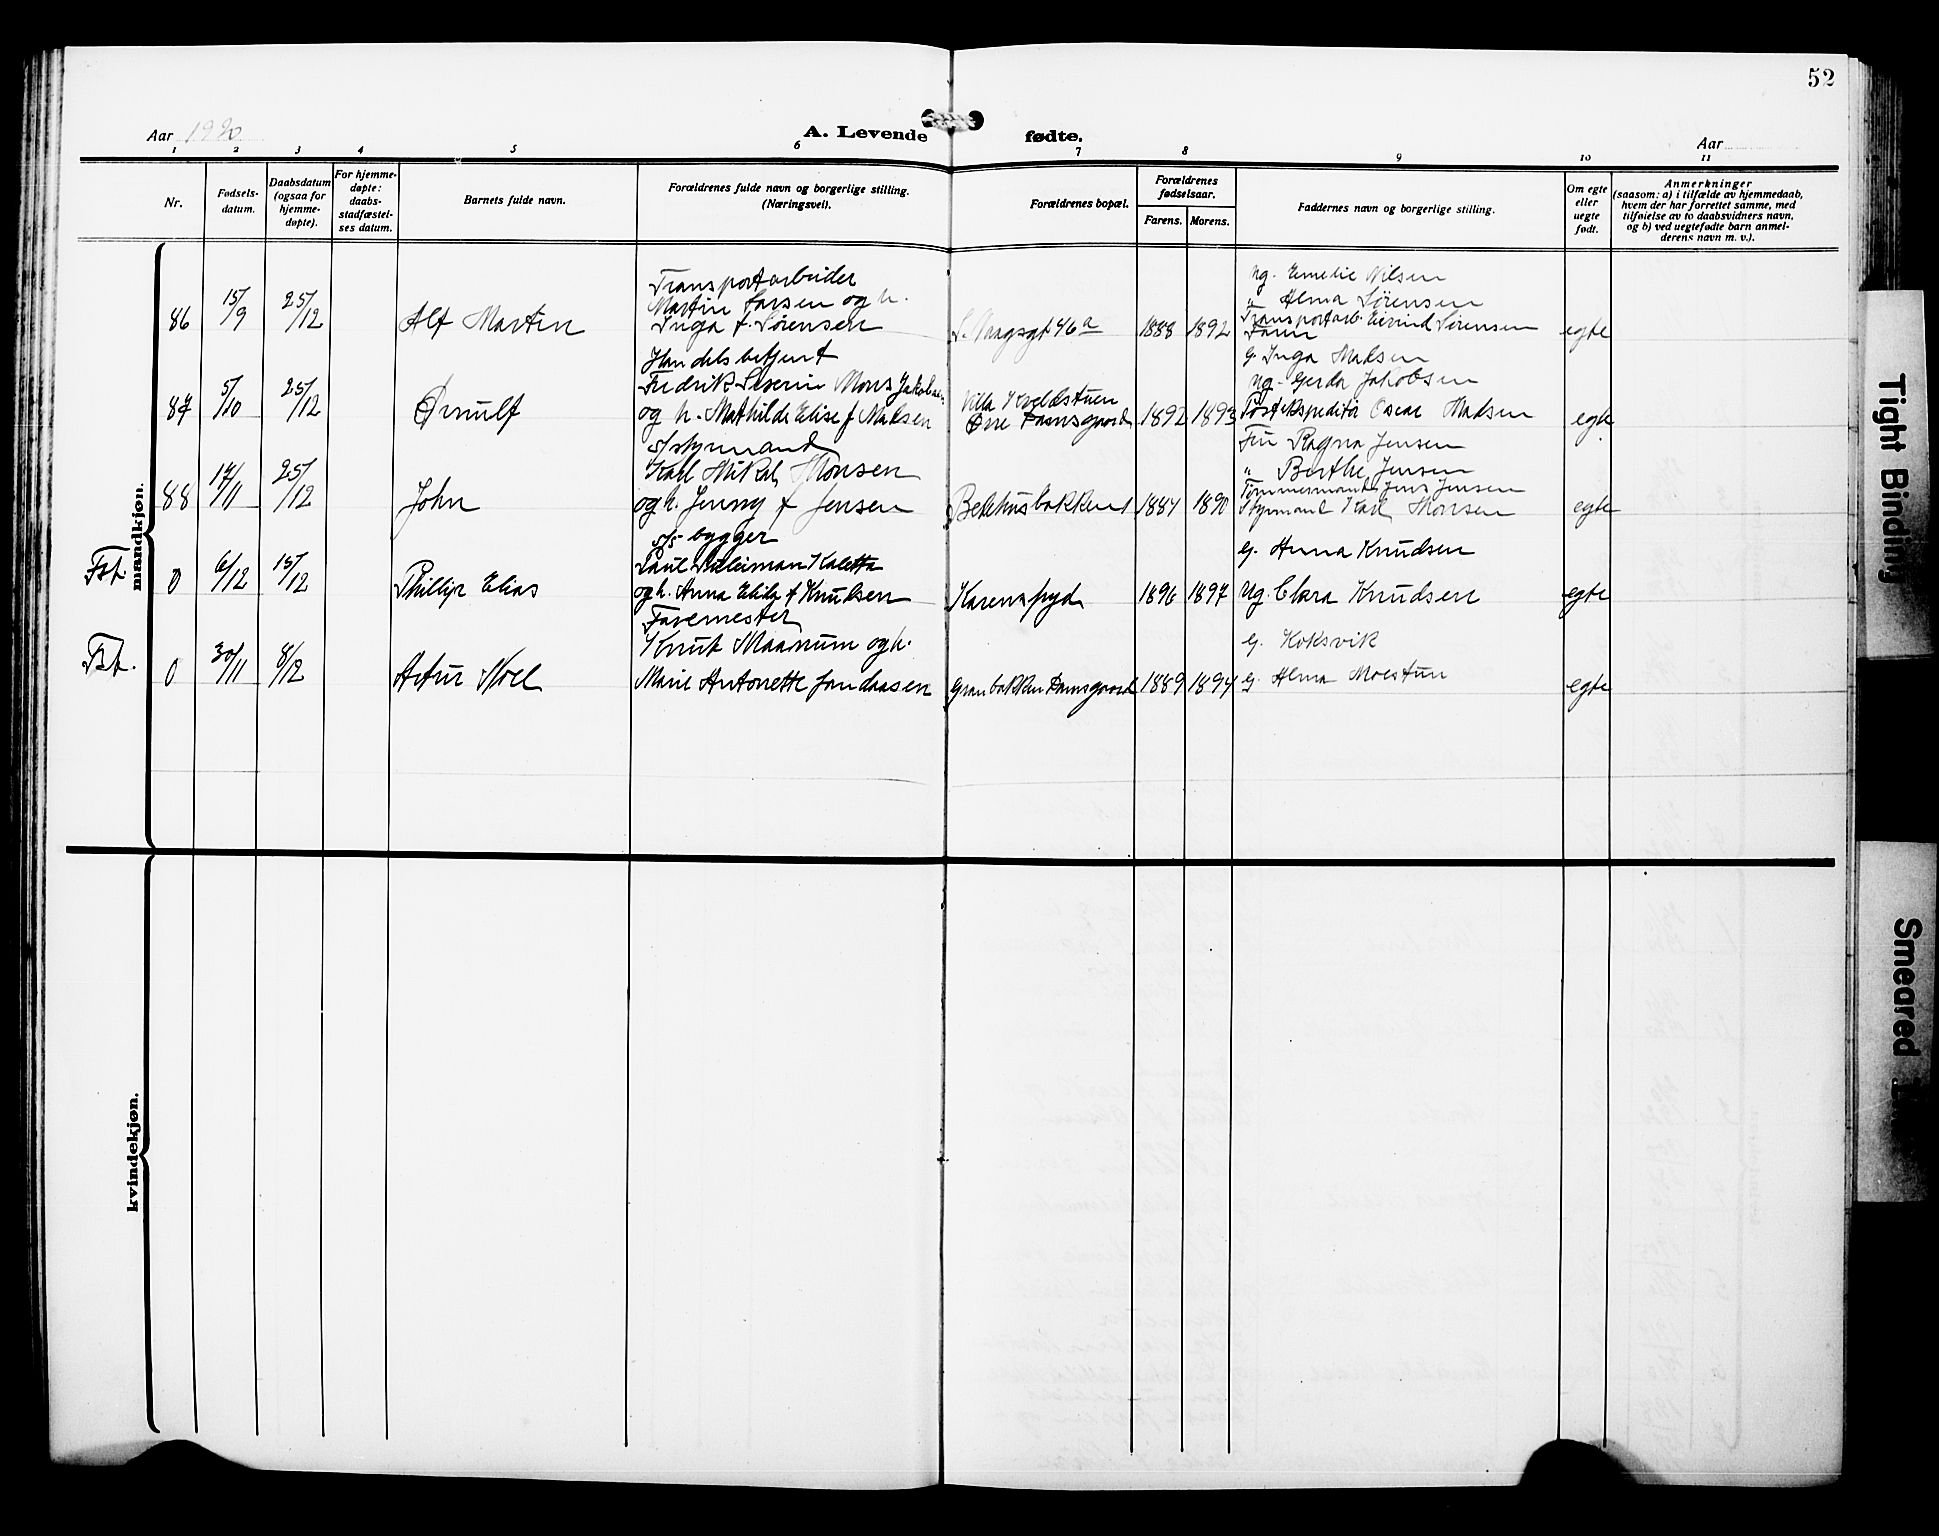 52
Aar 1920
A. Levende fødte.
Aar
1 2 3 4 5 6 7 8 9 10 11
Nr.
Fødsels-
datum.
Daabsdatum
(ogsaa for
hjemme-
døpte).
For hjemme-
døpte:
daabs-
stadfæstel-
ses datum.
Barnets fulde navn.
Forældrenes fulde navn og borgerlige stilling.
(Næringsvei).
Forældrenes bopæl.
Forældrenes
fødselsaar.
Farens. Morens.
Faddernes navn og borgerlige stilling.
Om egte
eller
uegte
født.
Anmerkninger
(saasom: a) i tilfælde av hjemmedaab,
hvem der har forrettet samme, med
tilføielse av to daabsvidners navn,
og b) ved uegtefødte barn anmel-
derens navn m. v.).
mandkjøn.
86 15/9 25/12 Alf Martin
Transportarbeider
Martin Larsen og h.
Inga f. Sørensen
46 a 1888 1892
Ug. Emelie Nilsen
" Alma Sørensen
Transportarb. Eivind Sørensen
Faren
egte
87 5/10 25/12 Ørnulf
Handelsbetjent
Fredrik Severin Mons Jakobsen
og h. Mathilde Elise f Madsen
Villa Kveldstuen
Øvre Damsgaard 1892 1893
G. Inga Madsen
Ug. Gerda Jakobsen
Postekspeditør Oscar Madsen
egte
88 14/11 25/12 John
s/styrmand
Karl Mikal Monsen
og h. Jenny f Jensen
Bekhusbakken 1 1887 1890
Frk Ragna Jensen
" Berthe Jensen
Tømmermand Jens Jensen
Styrmand Karl Monsen
egte
Fst. 0 6/12 15/12 Phillip Elias
s/s-bygger
Paul Kaletta
og h. Anna f Knudsen
Karensfryd 1896 1897
G. Anna Knudsen
Ug. Clara Knudsen
egte
Fst. 0 30/11 8/12 Artur Noel
Farvemester
Knut Maanum og h.
Marie Antonette Jondaasen
Granbakken Damsgaard 1889 1894
G. Koksvik
G. Alma Moestun
egte
kvindekjøn.
Tight Binding
Smeared